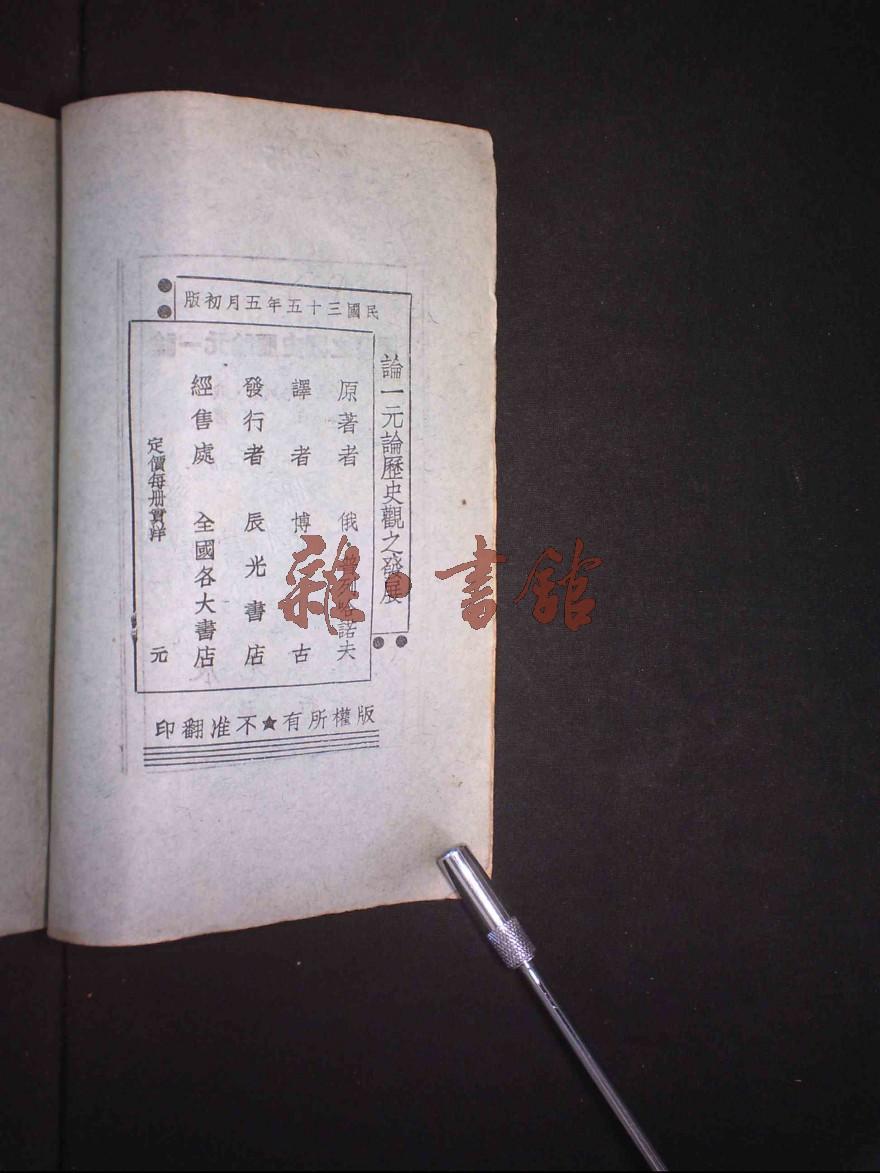 民國三十五年五月初版
論一元論歷史觀之發展
原著者 俄 普列哈諾夫
譯者 博古
發行者 辰光書店
經售處 全國各大書店
定價每册實洋 元
版權所有★不准翻印
雜·書館